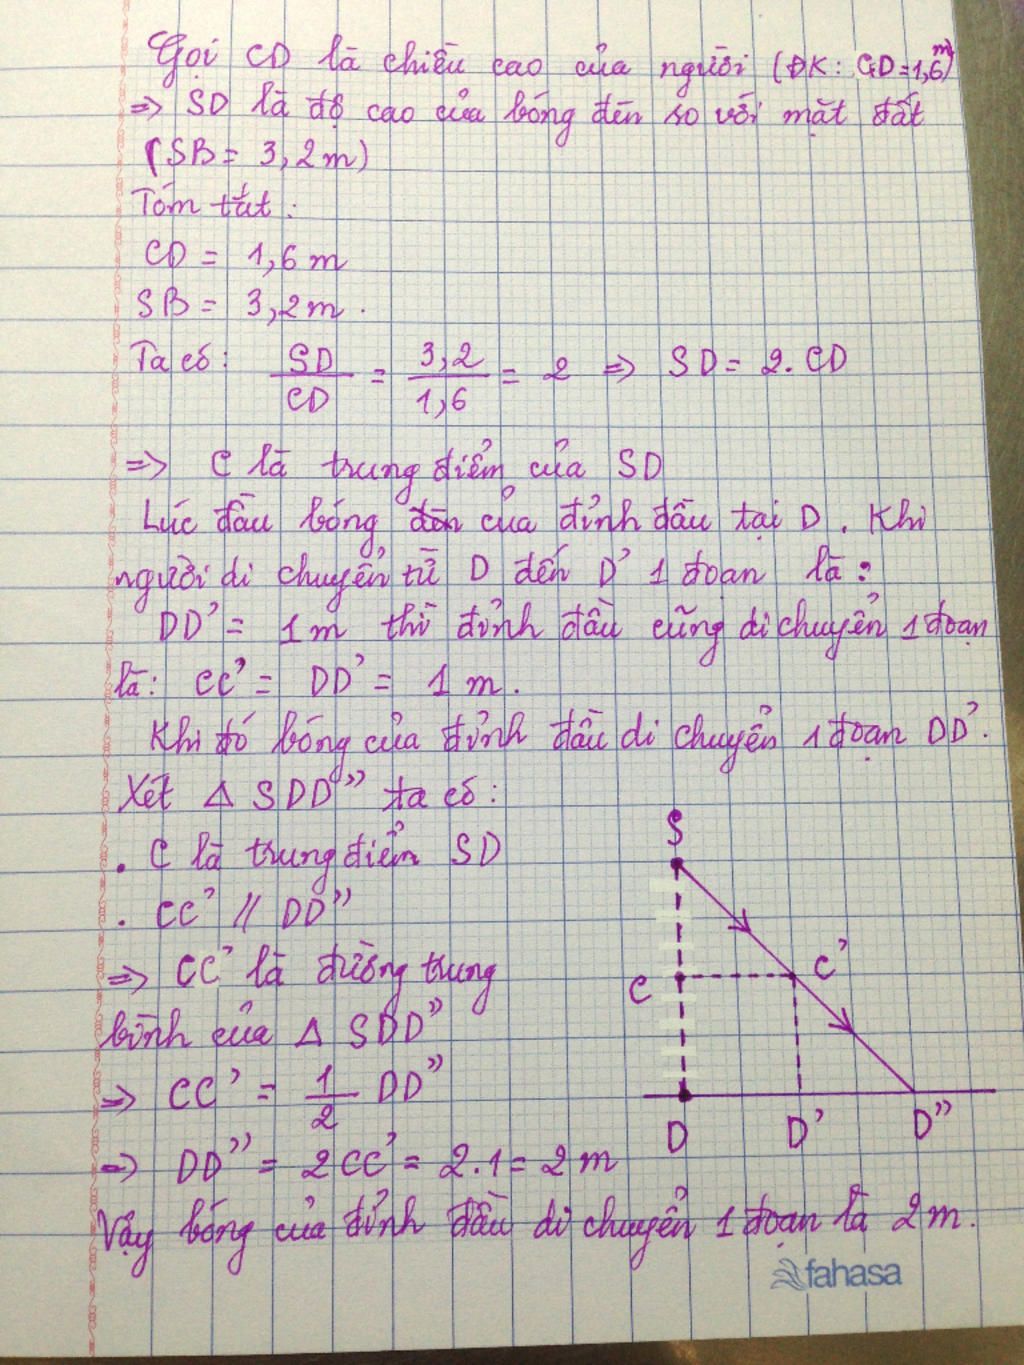 Gọi CD là chiều cao của người (ĐK: CD=1,6m)
=> SD là độ cao của bóng đèn so với mặt đất
(SB = 3,2m)
Tóm tắt:
CD = 1,6 m
SB = 3,2m.
Ta có: SD/CD = 3,2/1,6 = 2 => SD = 2. CD
=> C là trung điểm của SD
Lúc đầu bóng đèn của đỉnh đầu tại D. Khi
người di chuyển từ D đến D' 1 đoạn là:
DD' = 1m thì đỉnh đầu cũng di chuyển 1 đoạn
là: CC' = DD' = 1 m.
Khi đó bóng của đỉnh đầu di chuyển 1 đoạn DD'.
Xét Δ SDD" ta có:
. C là trung điểm SD
. CC' // DD"
=> CC' là đường trung
bình của Δ SDD"
=> CC' = 1/2 DD"
=> DD" = 2CC' = 2.1 = 2 m
Vậy bóng của đỉnh đầu di chuyển 1 đoạn là 2m.
S
C C'
D D' D"
fahasa